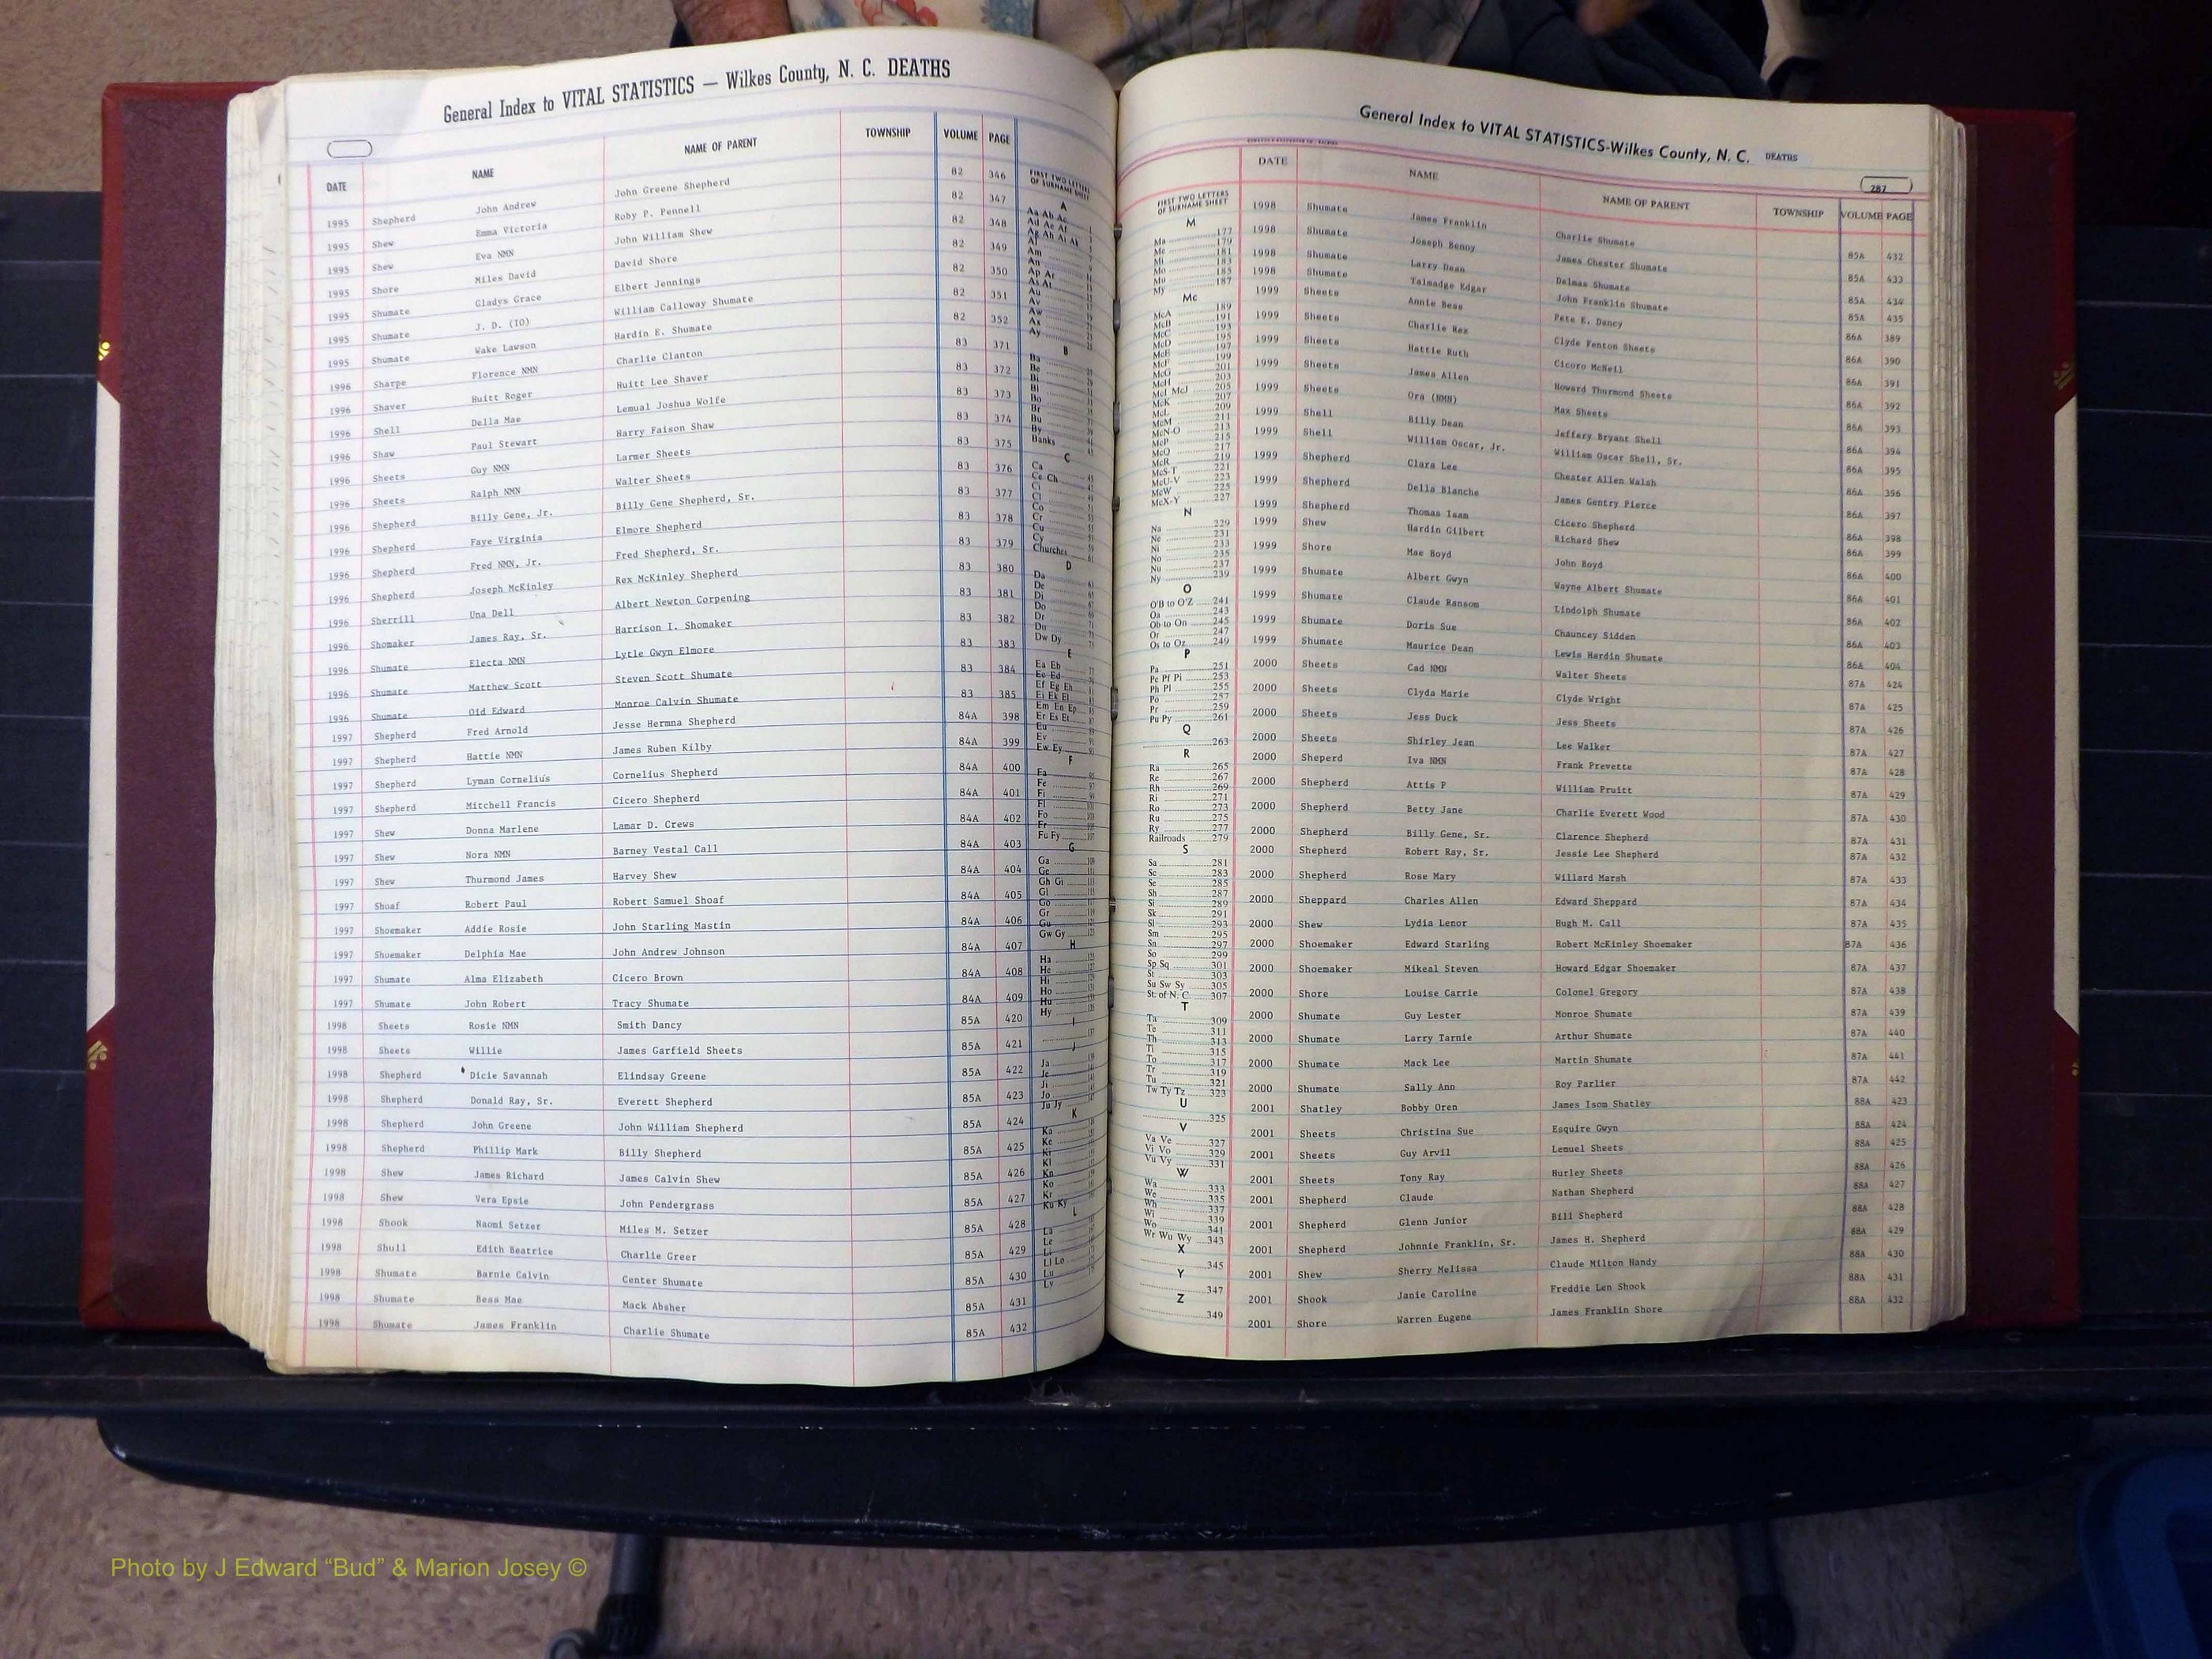 General Index to VITAL STATISTICS — Wilkes County, N. C. DEATHS
DATE NAME NAME OF PARENT TOWNSHIP VOLUME PAGE
1995 Shepherd John Andrew John Greene Shepherd 82 346
1995 Shew Emma Victoria Roby P. Pennell 82 347
1995 Shew Eva NMN John William Shew 82 348
1995 Shore Miles David David Shore 82 349
1995 Shumate Gladys Grace Elbert Jennings 82 350
1995 Shumate J. D. (IO) William Calloway Shumate 82 351
1995 Shumate Wake Lawson Hardin E. Shumate 82 352
1996 Sharpe Florence NMN Charlie Clanton 83 371
1996 Shaver Huitt Roger Huitt Lee Shaver 83 372
1996 Shell Della Mae Lemual Joshua Wolfe 83 373
1996 Shaw Paul Stewart Harry Faison Shaw 83 374
1996 Sheets Guy NMN Larmer Sheets 83 375
1996 Sheets Ralph NMN Walter Sheets 83 376
1996 Shepherd Billy Gene, Jr. Billy Gene Shepherd, Sr. 83 377
1996 Shepherd Faye Virginia Elmore Shepherd 83 378
1996 Shepherd Fred NMN, Jr. Fred Shepherd, Sr. 83 379
1996 Shepherd Joseph McKinley Rex McKinley Shepherd 83 380
1996 Sherrill Una Dell Albert Newton Corpening 83 381
1996 Shomaker James Ray, Sr. Harrison I. Shomaker 83 382
1996 Shumate Electa NMN Lytle Gwyn Elmore 83 383
1996 Shumate Matthew Scott Steven Scott Shumate 83 384
1996 Shumate Oid Edward Monroe Calvin Shumate 83 385
1997 Shepherd Fred Arnold Jesse Hermna Shepherd 84A 398
1997 Shepherd Hattie NMN James Ruben Kilby 84A 399
1997 Shepherd Lyman Cornelius Cornelius Shepherd 84A 400
1997 Shepherd Mitchell Francis Cicero Shepherd 84A 401
1997 Shew Donna Marlene Lamar D. Crews 84A 402
1997 Shew Nora NMN Barney Vestal Call 84A 403
1997 Shew Thurmond James Harvey Shew 84A 404
1997 Shoaf Robert Paul Robert Samuel Shoaf 84A 405
1997 Shoemaker Addie Rosie John Starling Mastin 84A 406
1997 Shuemaker Delphia Mae John Andrew Johnson 84A 407
1997 Shumate Alma Elizabeth Cicero Brown 84A 408
1997 Shumate John Robert Tracy Shumate 84A 409
1998 Sheets Rosie NMN Smith Dancy 85A 420
1998 Sheets Willie James Garfield Sheets 85A 421
1998 Shepherd Dicie Savannah Elindsay Greene 85A 422
1998 Shepherd Donald Ray, Sr. Everett Shepherd 85A 423
1998 Shepherd John Greene John William Shepherd 85A 424
1998 Shepherd Phillip Mark Billy Shepherd 85A 425
1998 Shew James Richard James Calvin Shew 85A 426
1998 Shew Vera Epsie John Pendergrass 85A 427
1998 Shook Naomi Setzer Miles M. Setzer 85A 428
1998 Shull Edith Beatrice Charlie Greer 85A 429
1998 Shumate Barnie Calvin Center Shumate 85A 430
1998 Shumate Bess Mae Mack Absher 85A 431
1998 Shumate James Franklin Charlie Shumate 85A 432
FIRST TWO LETTERS
OF SURNAME SHEET
A
Aa Ab Ac
Ad Ae Af
Ag Ah Ai Ak
Al
Am
An
Ap Ar
As At
Au
Av
Aw
Ax
Ay
B
Ba
Be
Bi
Bl
Bo
Br
Bu
By
Banks
C
Ca
Ce Ch
Ci
Cl
Co
Cr
Cu
Cy
Churches
D
Da
De
Di
Do
Dr
Du
Dw Dy
E
Ea Eb
Ec Ed
Ef Eg Eh
Ei Ek El
Em En Ep
Er Es Et
Eu
Ev
Ew Ey
F
Fa
Fe
Fi
Fl
Fo
Fr
Fu Fy
G
Ga
Ge
Gh Gi
Gl
Go
Gr
Gu
Gw Gy
H
Ha
He
Hi
Ho
Hu
Hy
I
J
Ja
Je
Ji
Jo
Ju Jy
K
Ka
Ke
Ki
Kl
Kn
Ko
Kr
Ku Ky
L
La
Le
Li
Ll Lo
Lu
Ly
General Index to VITAL STATISTICS-Wilkes County, N. C. DEATHS
287
FIRST TWO LETTERS
OF SURNAME SHEET
M
Ma 177
Me 179
Mi 181
Mo 183
Mu 185
My 187
Mc
McA 189
McB 191
McC 193
McD 195
McE 197
McF 199
McG 201
McH 203
McI McJ 205
McK 207
McL 209
McM 211
McN-O 213
McP 215
McQ 217
McR 219
McS-T 221
McU-V 223
McW 225
McX-Y 227
N
Na 229
Ne 231
Ni 233
No 235
Nu 237
Ny 239
O
O'B to O'Z 241
Oa 243
Ob to On 245
Or 247
Os to Oz 249
P
Pa 251
Pe Pf Pi 253
Ph Pl 255
Po 257
Pr 259
Pu Py 261
Q
263
R
Ra 265
Re 267
Rh 269
Ri 271
Ro 273
Ru 275
Ry 277
Railroads 279
S
Sa 281
Sc 283
Se 285
Sh 287
Si 289
Sk 291
Sl 293
Sm 295
Sn 297
So 299
Sp Sq 301
St 303
Su Sw Sy 305
St. of N. C. 307
T
Ta 309
Te 311
Th 313
Ti 315
To 317
Tr 319
Tu 321
Tw Ty Tz 323
U
325
V
Va Ve 327
Vi Vo 329
Vu Vy 331
W
Wa 333
We 335
Wh 337
Wi 339
Wo 341
Wr Wu Wy 343
X
345
Y
347
Z
349
DATE NAME NAME OF PARENT TOWNSHIP VOLUME PAGE
1998 Shumate James Franklin Charlie Shumate 85A 432
1998 Shumate Joseph Benny James Chester Shumate 85A 433
1998 Shumate Larry Dean Delmas Shumate 85A 434
1998 Shumate Talmadge Edgar John Franklin Shumate 85A 435
1999 Sheets Annie Bess Pete E. Dancy 86A 389
1999 Sheets Charlie Rex Clyde Fenton Sheets 86A 390
1999 Sheets Hattie Ruth Cicero McNeil 86A 391
1999 Sheets James Allen Howard Thurmond Sheets 86A 392
1999 Sheets Ora (NMN) Max Sheets 86A 393
1999 Shell Billy Dean Jeffery Bryant Shell 86A 394
1999 Shell William Oscar, Jr. William Oscar Shell, Sr. 86A 395
1999 Shepherd Clara Lee Chester Allen Walsh 86A 396
1999 Shepherd Della Blanche James Gentry Pierce 86A 397
1999 Shepherd Thomas Isam Cicero Shepherd 86A 398
1999 Shew Hardin Gilbert Richard Shew 86A 399
1999 Shore Mae Boyd John Boyd 86A 400
1999 Shumate Albert Gwyn Wayne Albert Shumate 86A 401
1999 Shumate Claude Ransom Lindolph Shumate 86A 402
1999 Shumate Doris Sue Chauncey Sidden 86A 403
1999 Shumate Maurice Dean Lewis Hardin Shumate 86A 404
2000 Sheets Cad NMN Walter Sheets 87A 424
2000 Sheets Clyda Marie Clyde Wright 87A 425
2000 Sheets Jess Duck Jess Sheets 87A 426
2000 Sheets Shirley Jean Lee Walker 87A 427
2000 Sheperd Iva NMN Frank Prevette 87A 428
2000 Shepherd Attis P William Pruitt 87A 429
2000 Shepherd Betty Jane Charlie Everett Wood 87A 430
2000 Shepherd Billy Gene, Sr. Clarence Shepherd 87A 431
2000 Shepherd Robert Ray, Sr. Jessie Lee Shepherd 87A 432
2000 Shepherd Rose Mary Willard Marsh 87A 433
2000 Sheppard Charles Allen Edward Sheppard 87A 434
2000 Shew Lydia Lenor Hugh M. Call 87A 435
2000 Shoemaker Edward Starling Robert McKinley Shoemaker 87A 436
2000 Shoemaker Mikeal Steven Howard Edgar Shoemaker 87A 437
2000 Shore Louise Carrie Colonel Gregory 87A 438
2000 Shumate Guy Lester Monroe Shumate 87A 439
2000 Shumate Larry Tarnie Arthur Shumate 87A 440
2000 Shumate Mack Lee Martin Shumate 87A 441
2000 Shumate Sally Ann Roy Parlier 87A 442
2001 Shatley Bobby Oren James Isom Shatley 88A 423
2001 Sheets Christina Sue Esquire Gwyn 88A 424
2001 Sheets Guy Arvil Lemuel Sheets 88A 425
2001 Sheets Tony Ray Hurley Sheets 88A 426
2001 Shepherd Claude Nathan Shepherd 88A 427
2001 Shepherd Glenn Junior Bill Shepherd 88A 428
2001 Shepherd Johnnie Franklin, Sr. James H. Shepherd 88A 429
2001 Shew Sherry Melissa Claude Milton Handy 88A 430
2001 Shook Janie Caroline Freddie Len Shook 88A 431
2001 Shore Warren Eugene James Franklin Shore 88A 432
Photo by J Edward “Bud” & Marion Josey ©